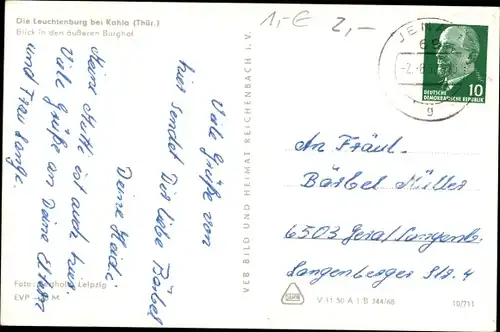 Die Leuchtenburg bei Kahla (Thür.)
Blick in den äußeren Burghof
1,-€ 2,-
Viele Grüße von
hier sendet Dir liebe Bärbel
Deine Heidi.
Meine Mutti ist auch hier.
Viele Grüße an Deine Eltern
und Frau Lange.
VEB BILD UND HEIMAT REICHENBACH I. V.
JENA
69
g
10
DEUTSCHE
DEMOKRATISCHE REPUBLIK
An Fräul.
Bärbel Müller
6503 Gera/Langenb.
Langenberger Str. 4
Foto: Leipzig
EVP M
V 11 50 A 1 B 344/68
10/711